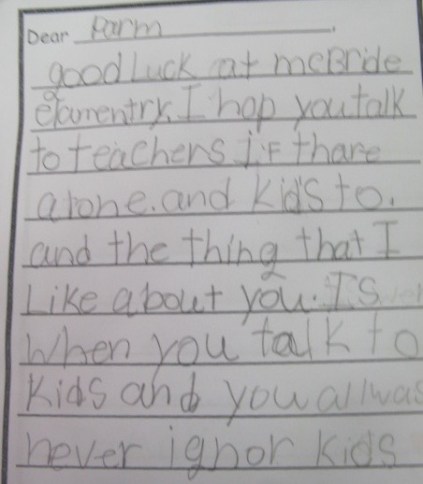 Dear Parm.
good Luck at mcBride
elamentry. I hop you talk
to teachers if thare
alone. and kids to.
and the thing that I
Like about you. Is
When you talk to
Kids and you allwas
never ignor kids